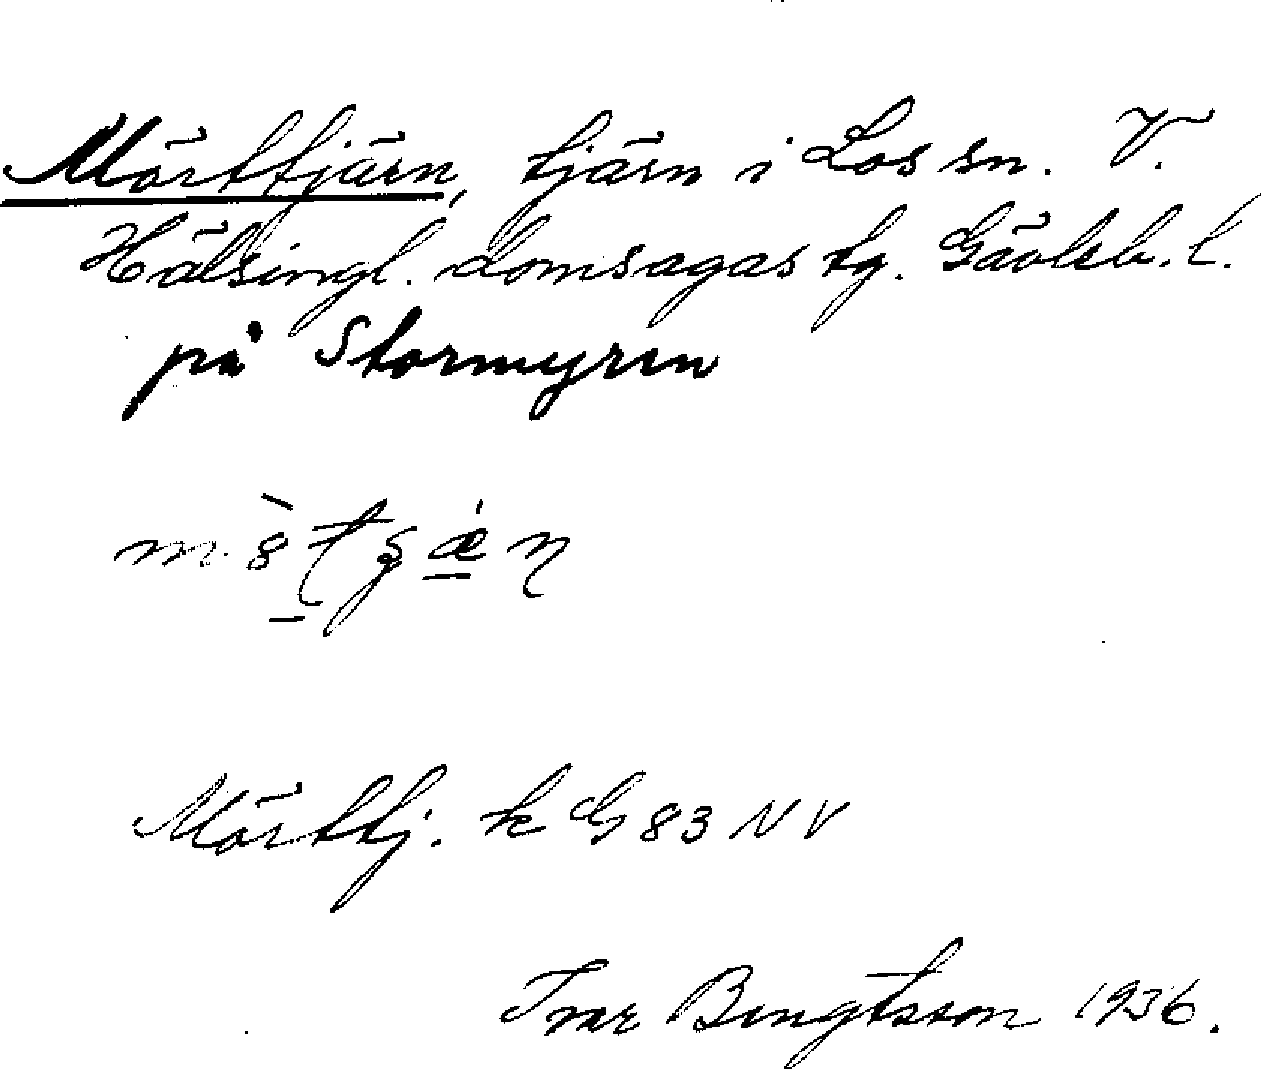 Mörttjärn, tjärn i Los sn. V.
Hälsingl. domsagas tg. Gävleb. l.
på Stormyren
Mörttj. k G 83 NV
Ivar Bengtsson 1936.